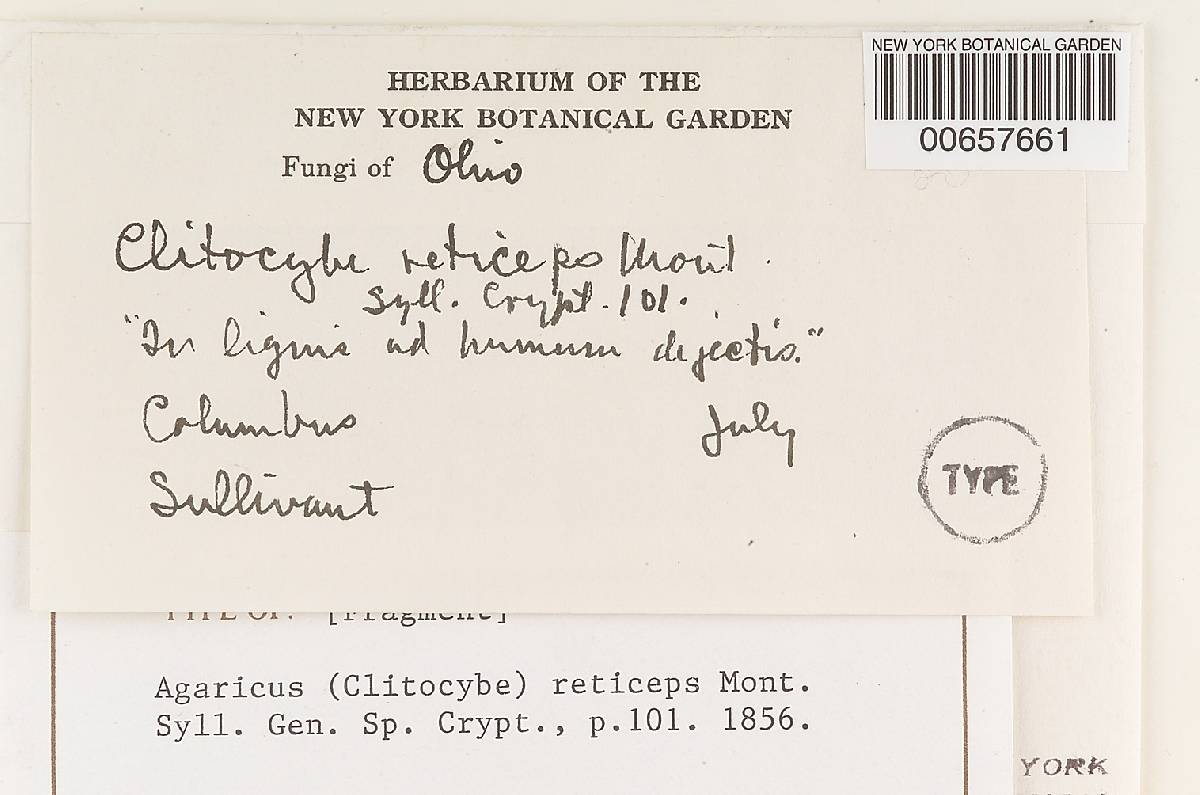 NEW YORK BOTANICAL GARDEN
00657661
HERBARIUM OF THE
NEW YORK BOTANICAL GARDEN
Fungi of Ohio
Clitocybe reticeps Mont.
Syll. Crypt. 101.
"In lignis ad humum dejectis."
Columbus July
Sullivant
TYPE
TYPE OF: [Fragment]
Agaricus (Clitocybe) reticeps Mont.
Syll. Gen. Sp. Crypt., p.101. 1856.
YORK